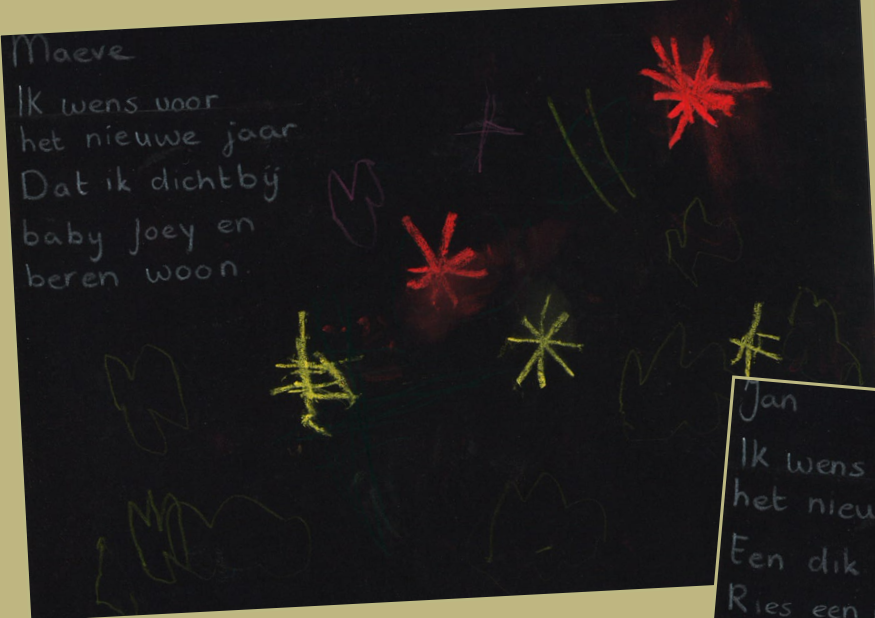 Maeve
Ik wens voor
het nieuwe jaar
Dat ik dichtbij
baby Joey en
beren woon.
Jan
Ik wens
het nieu
Een dik
Ries een